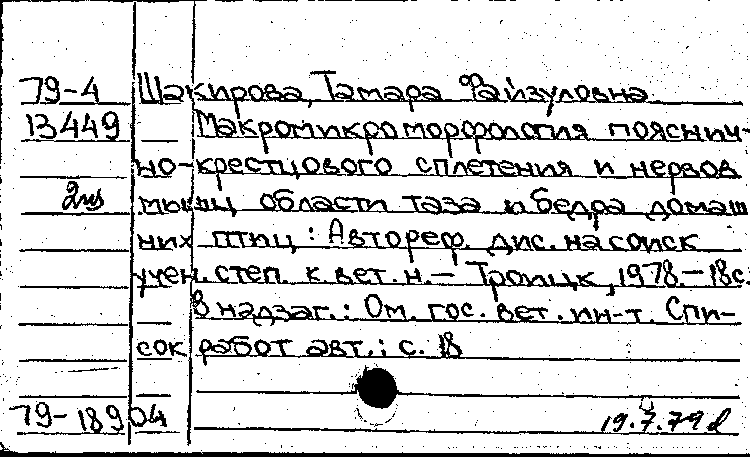 79-4 Шакирова, Тамара Файзуловна
13449 Макромикроморфология пояснич-
но-крестцового сплетения и нервов
2 экз мышц области таза и бедра домаш
них птиц : Автореф. дис. на соиск
учен. степ. к. вет. н. — Троицк, 1978. — 18 с.
В надзаг.: Ом. гос. вет. ин-т. Спи-
сок работ авт.: с. 18
79-18904 19.7.79